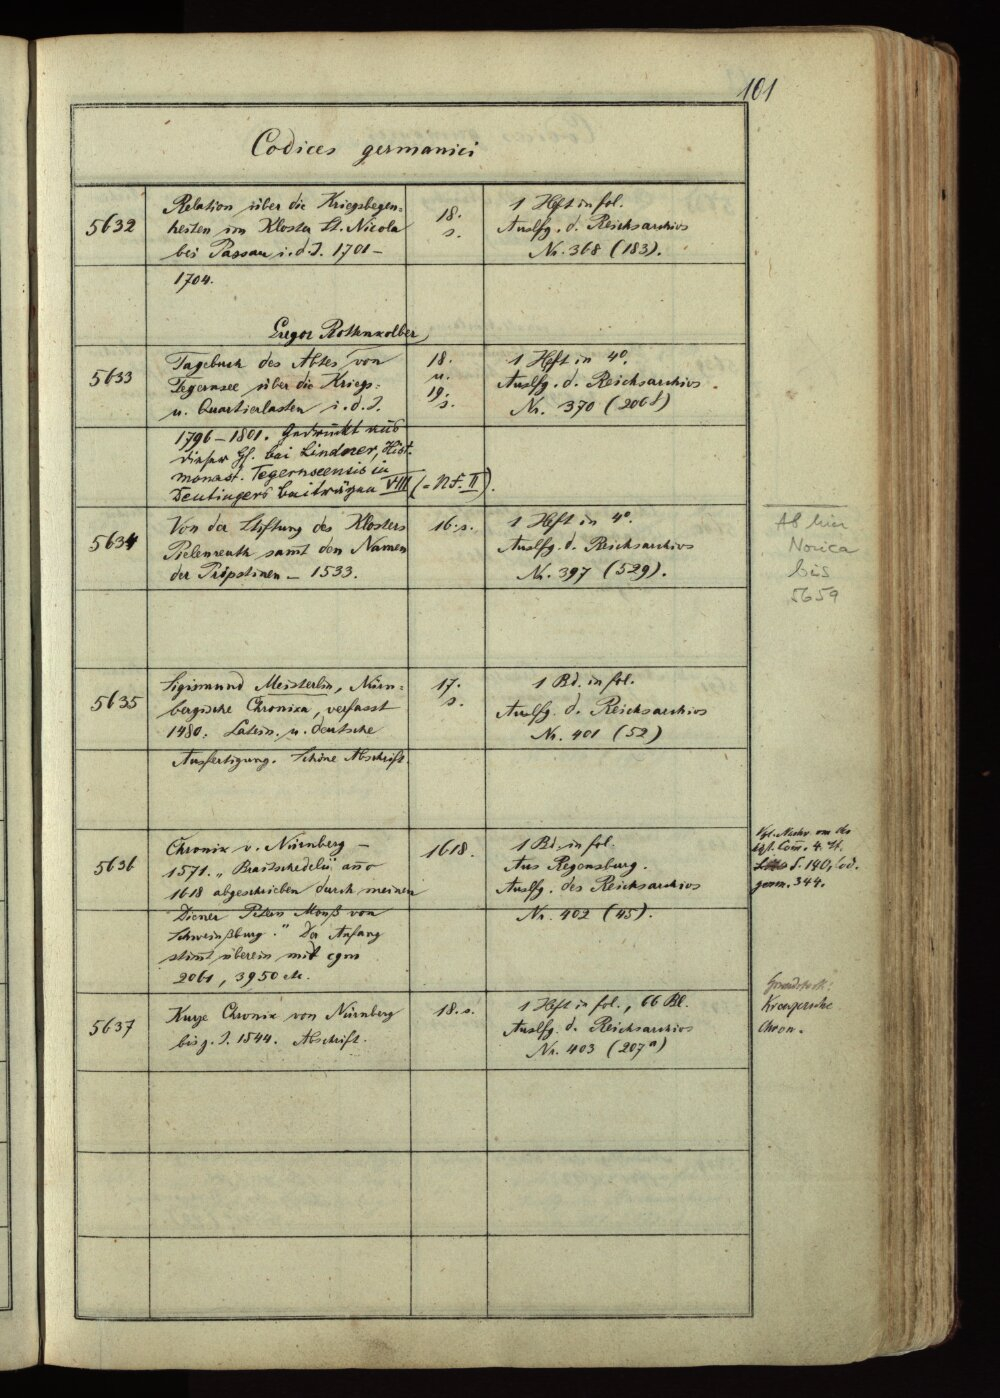 101
Codices germanici
5632
Relation über die Kriegsbegen-
heiten im Kloster St. Nicola
bei Passau i. d. J. 1701 –
1704.
18.
s.
1 Heft in fol.
Auslfg. d. Reichsarchivs
Nr. 368 (183).
Gregor Rothenkolber,
5633
Tagebuch des Abtes von
Tegernsee über die Kriegs-
u. Quartierlasten i. d. J.
1796 – 1801. Gedruckt aus
dieser Hs. bei Lindner, Hist.
monast. Tegernseensis in
Deutingers Beiträgen VIII (= NF. II).
18.
u.
19.
s.
1 Heft in 4°.
Auslfg. d. Reichsarchivs.
Nr. 370 (206 )
5634
Von der Stiftung des Klosters
Pielenreuth samt den Namen
der Pröpstinen – 1533.
16. s.
1 Heft in 4°.
Auslfg. d. Reichsarchivs
Nr. 397 (529).
Ab hier
Norica
bis
5659
5635
Sigismund Meisterlin, Nürn-
bergische Chronika, verfasst
1480. Latein. u. deutsche
Ausfertigung. Schöne Abschrift.
17.
s.
1 Bd. in fol.
Auslfg. d. Reichsarchivs
Nr. 401 (52)
5636
Chronik v. Nürnberg –
1571. „ anno
1618 abgeschrieben durch meinen
Diener Petern Monß von
Schweinßburg." Der Anfang
stimt überein mit cgm
2061, 3950 etc.
1618.
1 Bd. in fol.
Aus Regensburg.
Auslfg. des Reichsarchivs
Nr. 402 (45).
Vgl. Nachr. von der
hist. Com. 4. St.
S. 140, cod.
germ. 344.
5637
Kurze Chronik von Nürnberg
bis z. J. 1544. Abschrift.
18. s.
1 Heft in fol., 66 Bl.
Auslfg. d. Reichsarchivs
Nr. 403 (207ª)
Grundstock:
Chron.